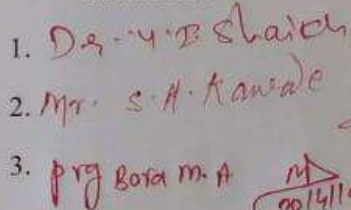 1. Dr. Y. B Shaikh
2. Mr. S. A. Kawade
3. prg Bora M. A